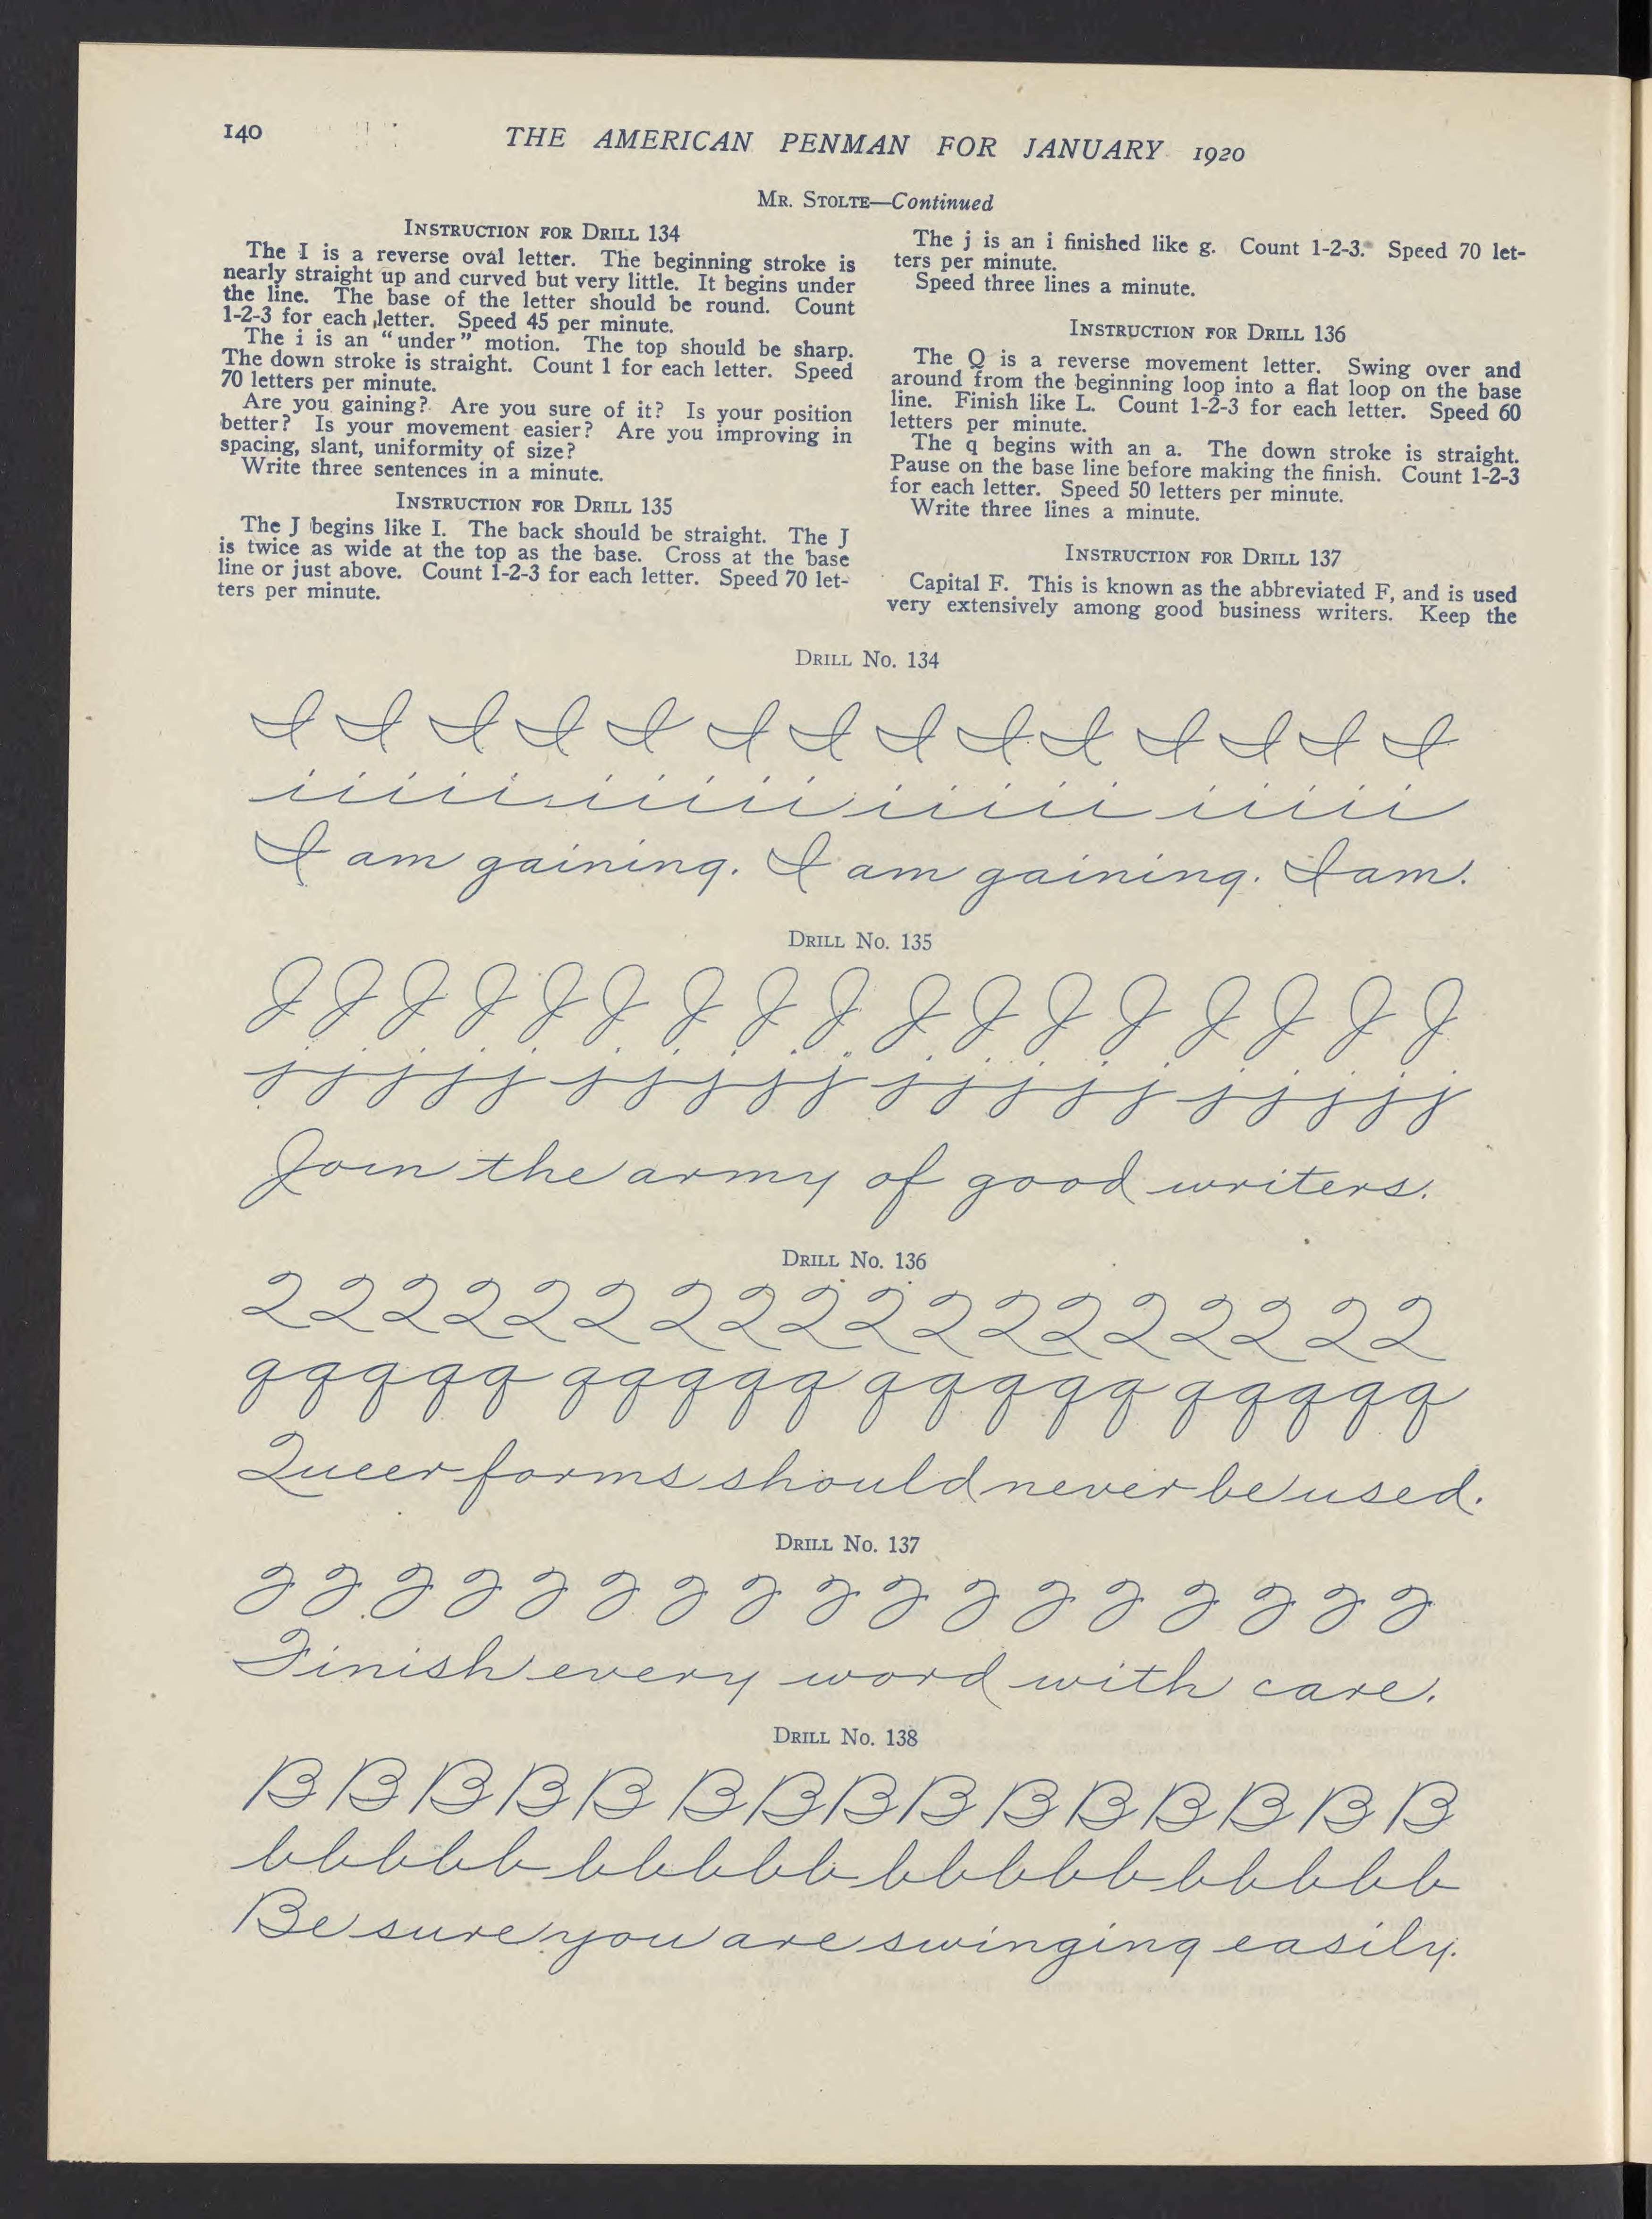 140
THE AMERICAN PENMAN FOR JANUARY 1920
MR. STOLTE—Continued
INSTRUCTION FOR DRILL 134
The I is a reverse oval letter. The beginning stroke is
nearly straight up and curved but very little. It begins under
the line. The base of the letter should be round. Count
1-2-3 for each letter. Speed 45 per minute.
The i is an "under" motion. The top should be sharp.
The down stroke is straight. Count 1 for each letter. Speed
70 letters per minute.
Are you gaining? Are you sure of it? Is your position
better? Is your movement easier? Are you improving in
spacing, slant, uniformity of size?
Write three sentences in a minute.
INSTRUCTION FOR DRILL 135
The J begins like I. The back should be straight. The J
is twice as wide at the top as the base. Cross at the base
line or just above. Count 1-2-3 for each letter. Speed 70 let-
ters per minute.
The j is an i finished like g. Count 1-2-3. Speed 70 let-
ters per minute.
Speed three lines a minute.
INSTRUCTION FOR DRILL 136
The Q is a reverse movement letter. Swing over and
around from the beginning loop into a flat loop on the base
line. Finish like L. Count 1-2-3 for each letter. Speed 60
letters per minute.
The q begins with an a. The down stroke is straight.
Pause on the base line before making the finish. Count 1-2-3
for each letter. Speed 50 letters per minute.
Write three lines a minute.
INSTRUCTION FOR DRILL 137
Capital F. This is known as the abbreviated F, and is used
very extensively among good business writers. Keep the
DRILL No. 134
I I I I I I I I I I I I I I
iiiii iiiii iiiii iiiii
I am gaining. I am gaining. I am.
DRILL No. 135
J J J J J J J J J J J J J J J J J
jjjjj jjjjj jjjjj jjjjj
Join the army of good writers.
DRILL No. 136
Q Q Q Q Q Q Q Q Q Q Q Q Q Q Q Q Q Q
qqqqq qqqqq qqqqq qqqqq
Queer forms should never be used.
DRILL No. 137
F F F F F F F F F F F F F F F F F
Finish every word with care.
DRILL No. 138
B B B B B B B B B B B B B B B
bbbbb bbbbb bbbbb bbbbb
Be sure you are swinging easily.